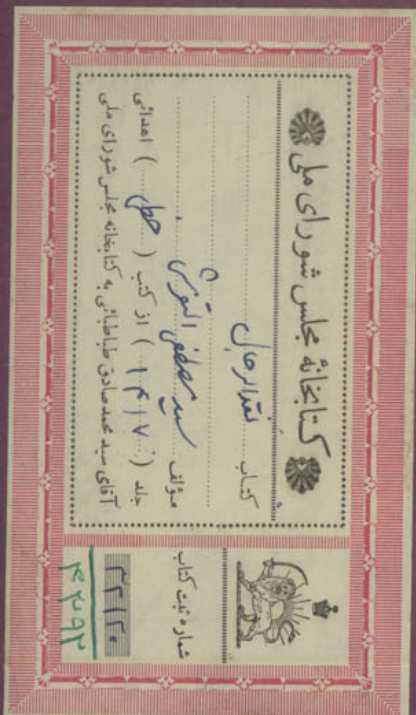 کتابخانهٔ مجلس شورای ملی
کتاب نقدالرجال
مؤلف سید مصطفی التفرشی
جلد ( ۱۴۱۷ ) از کتب ( خطی ) اهدائی
آقای سید محمد صادق طباطبائی به کتابخانه مجلس شورای ملی
شماره ثبت کتاب
۳۲۱۲۰
۴۴۹۲